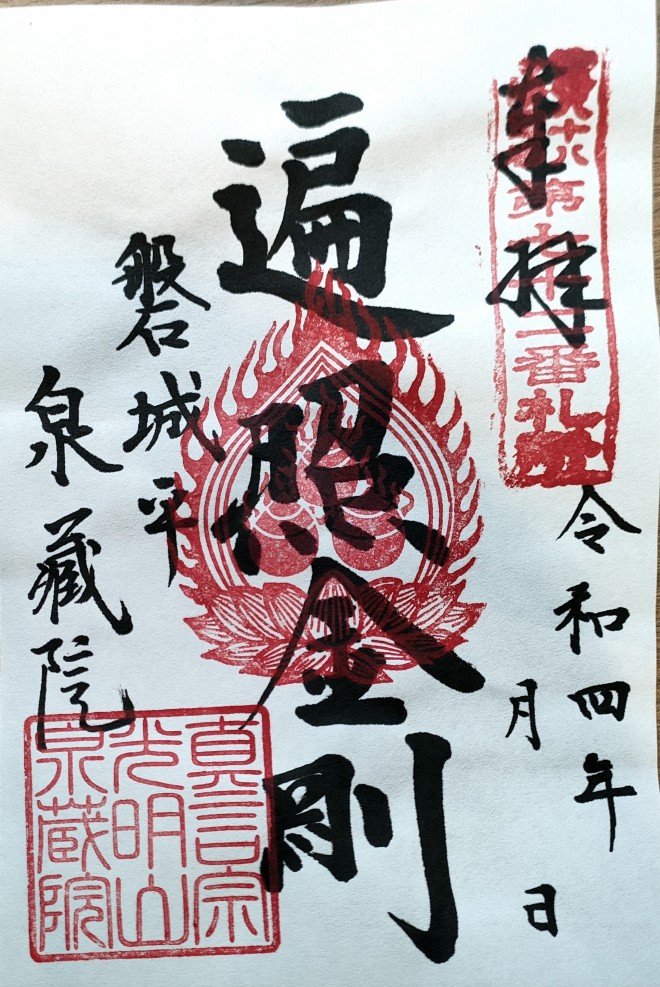 奉拝
第 二番札所
令和四年
月 日
遍照金剛
磐城平
泉蔵院
真言宗
光明山
泉蔵院